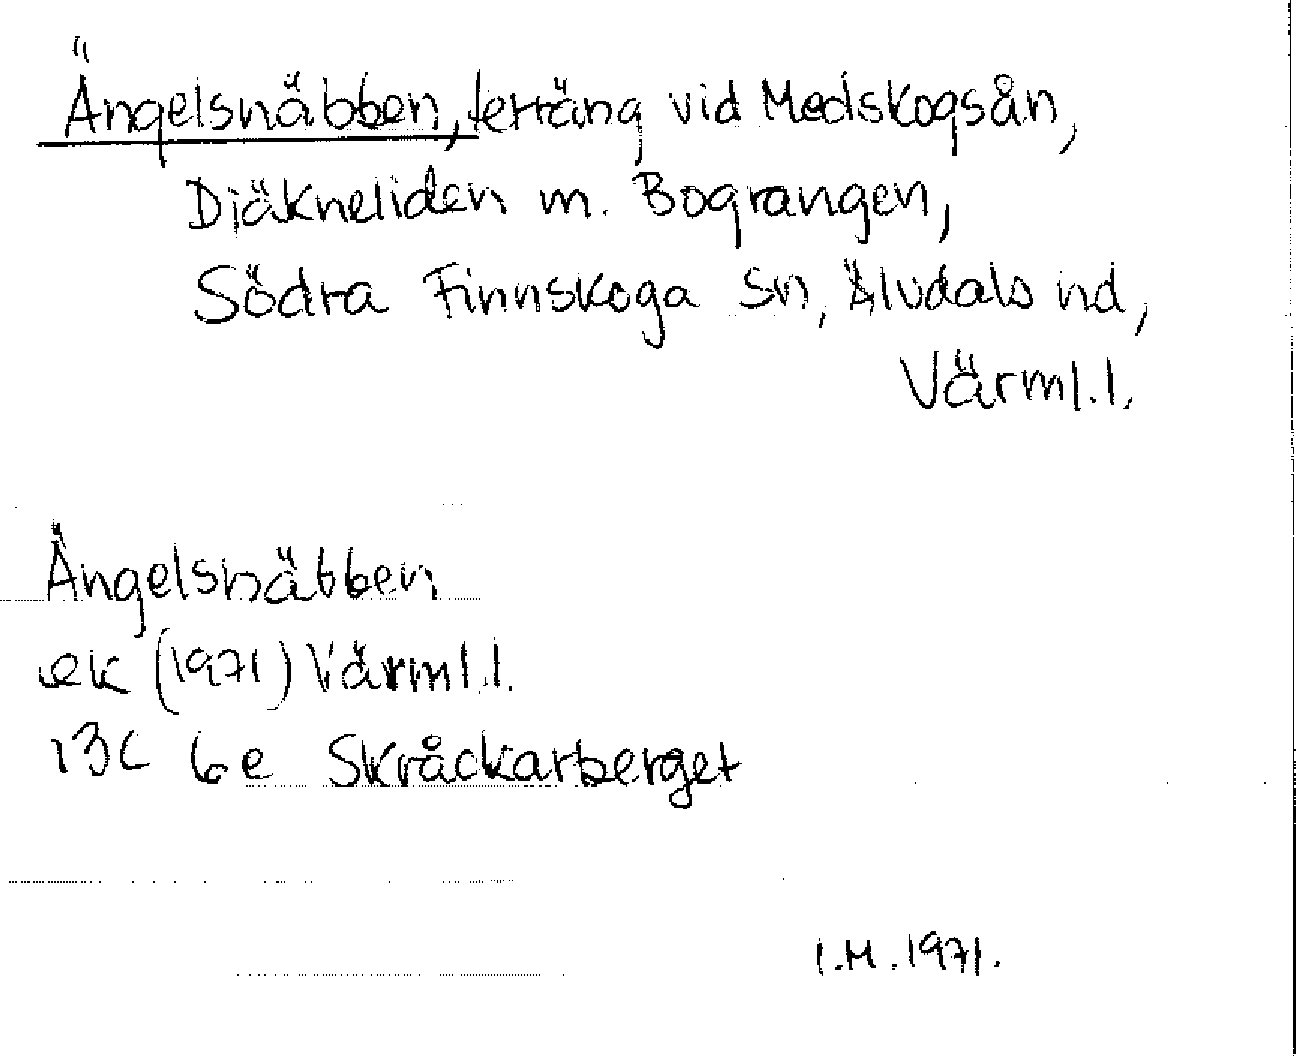 Ängelsnäbben, terräng vid Medskogsån,
Djäkneliden m. Bograngen,
Södra Finnskoga sn, Älvdals hd,
Värml.l.
Ängelsnäbben
ek (1971) Värml.l.
13C 6e Skråckarberget
I.M. 1971.